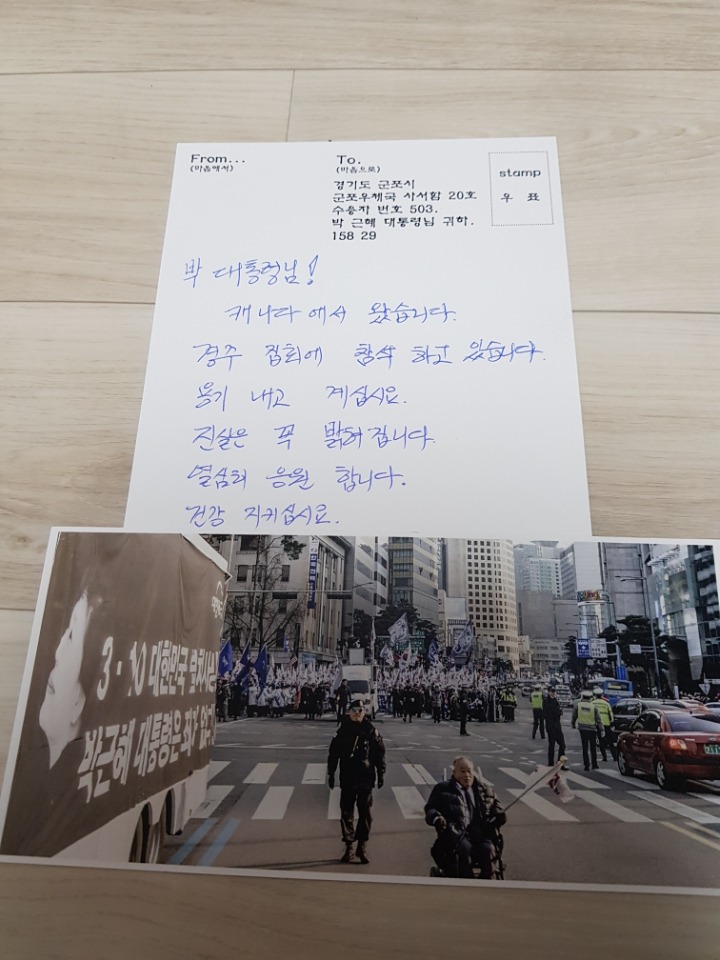 From...
(마음에서)
To.
(마음으로)
경기도 군포시
군포우체국 사서함 20호
수용자 번호 503.
박 근혜 대통령님 귀하.
158 29
stamp
우 표
박 대통령님!
캐나다에서 왔습니다.
경주 집회에 참석 하고 있습니다.
용기 내고 계십시요.
진실은 꼭 밝혀집니다.
열심히 응원 합니다.
건강 지키십시요.
3·10 대한민국
박근혜 대통령은 죄가